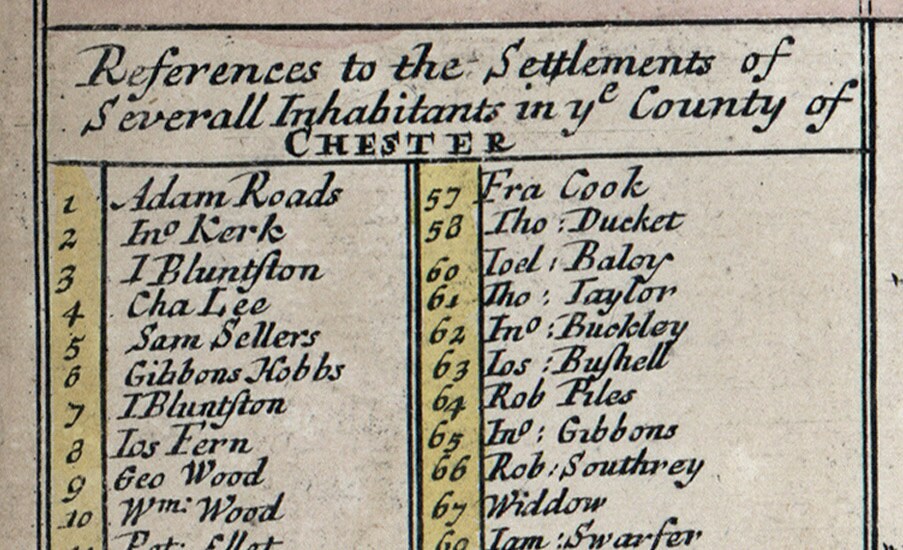 References to the Settlements of
Severall Inhabitants in yᵉ County of
CHESTER
1 Adam Roads
2 Inᵒ Kerk
3 I Bluntſton
4 Cha Lee
5 Sam Sellers
6 Gibbons Hobbs
7 I Bluntſton
8 Ios Fern
9 Geo Wood
10 Wᵐ: Wood
57 Fra Cook
58 Tho: Ducket
60 Ioel: Baloy
61 Tho: Taylor
62 Inᵒ: Buckley
63 Ios: Buſhell
64 Rob Piles
65 Inᵒ: Gibbons
66 Rob: Southrey
67 Widdow
Iam: Swarfer